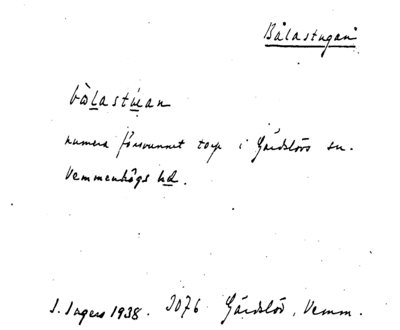 Bålastugan
bålastuan
numera försvunnet torp i Gärdslövs sn.
Vemmenhögs hd.
I. Ingers 1938. 3076 Gärdslöv, Vemm.